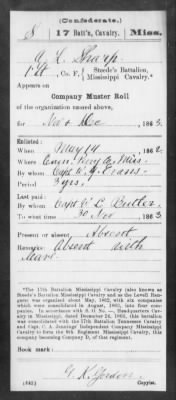 (Confederate.)
S 17 Batt'n, Cavalry, Miss.
A. L. Sharp
Pvt, Co. F, Steede's Battalion, Mississippi Cavalry.*
Appears on
Company Muster Roll
of the organization named above,
for Nov & Dec, 1863.
Enlisted:
When May 14, 1862
Where
By whom Capt W. G. Evans
Period 3 yrs.
Last paid:
By whom Capt V. L. Butler
To what time 30 Nov, 1863
Present or absent, Absent
Remarks: Absent with
leave
*The 17th Battalion Mississippi Cavalry (also known as
Steede's Battalion Mississippi Cavalry and as the Lowell Rangers)
was organized about May, 1862, with six companies
which were consolidated in August, 1863, into four companies.
In accordance with S. O. No. —, Headquarters Cavalry
in Mississippi, dated December 24, 1863, this battalion
was consolidated with the 17th Battalion Tennessee Cavalry
and Capt. C. A. Jennings' Independent Company Mississippi Cavalry
to form the 9th Regiment Mississippi Cavalry, this
company becoming Company D, of that regiment.
Book mark:
G. K. Gordon
(642) Copyist.